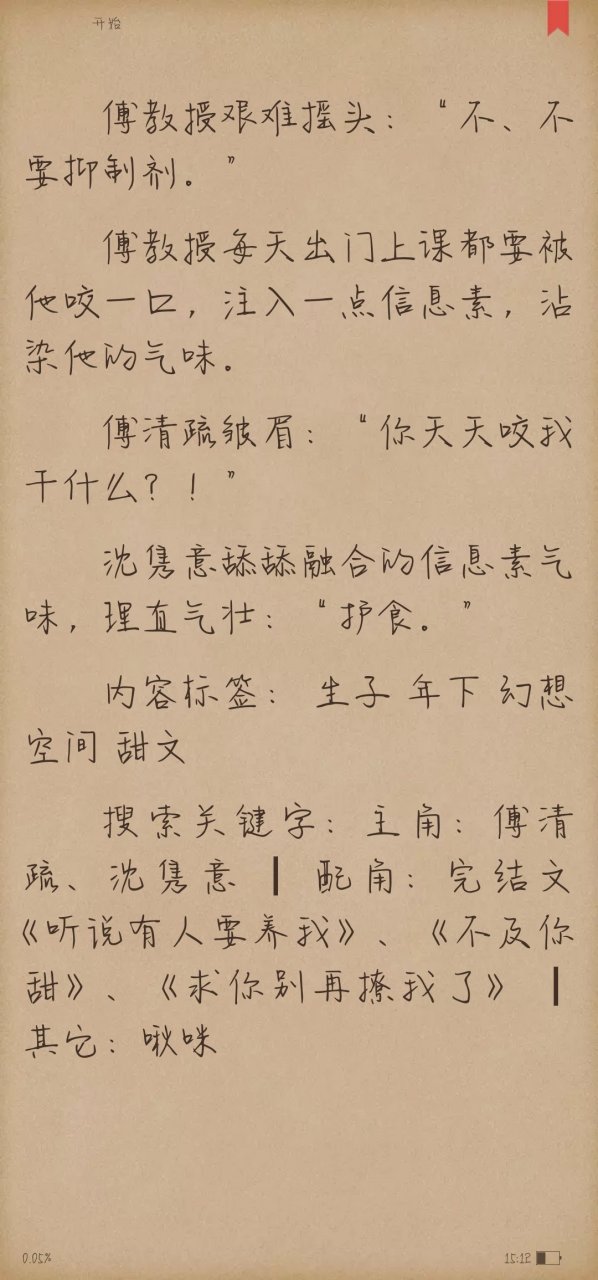 开始
傅教授艰难摇头：“不、不
要抑制剂。”
傅教授每天出门上课都要被
他咬一口，注入一点信息素，沾
染他的气味。
傅清疏皱眉：“你天天咬我
干什么？！”
沈隽意舔舔融合的信息素气
味，理直气壮：“护食。”
内容标签： 生子 年下 幻想
空间 甜文
搜索关键字：主角：傅清
疏、沈隽意 ┃ 配角：完结文
《听说有人要养我》、《不及你
甜》、《求你别再撩我了》 ┃
其它：啾咪
0.05%
15:12